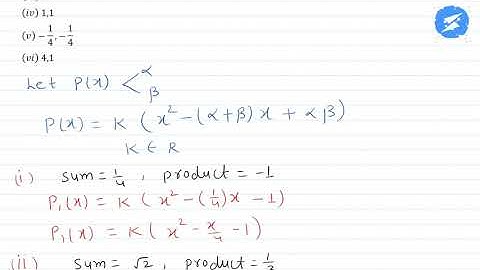 (iv) 1,1
(v) −1/4, −1/4
(vi) 4,1
Let P(x) < α
β
P(x) = K ( x² − (α+β) x + α β )
K ∈ R
(i) sum = 1/4 , product = −1
P₁(x) = K ( x² − (1/4)x − 1 )
P₁(x) = K ( x² − x/4 − 1 )
(ii) sum = √2 , product = 1/3